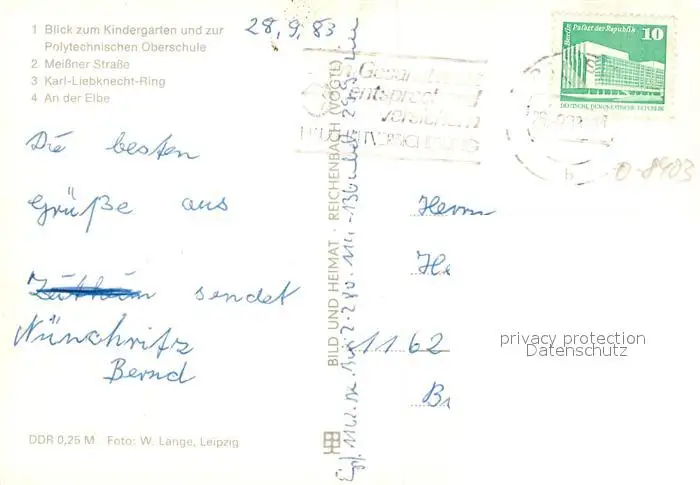 1 Blick zum Kindergarten und zur
Polytechnischen Oberschule
2 Meißner Straße
3 Karl-Liebknecht-Ring
4 An der Elbe
28.9.83
Die besten
Grüße aus
Zeithain sendet
Nünchritz
Bernd
DDR 0,25 M Foto: W. Lange, Leipzig
BILD UND HEIMAT · REICHENBACH (VOGTL)
entsprechend
versichern
Berlin, Palast der Republik
10
DEUTSCHE DEMOKRATISCHE REPUBLIK
b
0-8403
Herrn
1162
privacy protection
Datenschutz